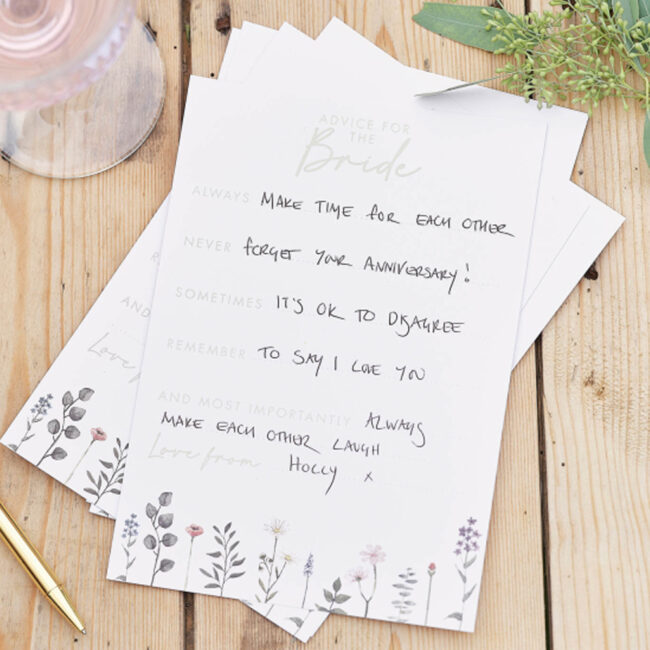 ADVICE FOR
THE
Bride
ALWAYS MAKE TIME FOR EACH OTHER
NEVER FORGET YOUR ANNIVERSARY!
SOMETIMES IT'S OK TO DISAGREE
REMEMBER TO SAY I LOVE YOU
AND MOST IMPORTANTLY ALWAYS
MAKE EACH OTHER LAUGH
Love from HOLLY x
AND
Love